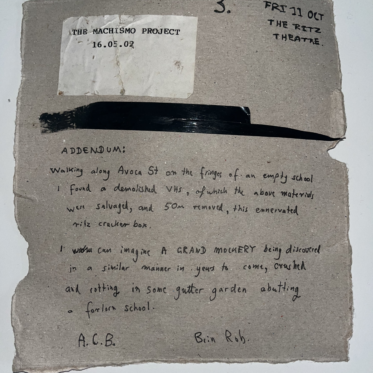 3.
FRI 11 OCT
THE RITZ
THEATRE.
THE MACHISMO PROJECT
16.05.02
ADDENDUM:
Walking along Avoca St on the fringes of an empty school
I found a demolished VHS, of which the above materials
were salvaged, and 50m removed, this enervated
ritz cracker box.
I can imagine A GRAND MOCKERY being discovered
in a similar manner in years to come, crushed
and rotting in some gutter garden abutting
a forlorn school.
A.C.B.